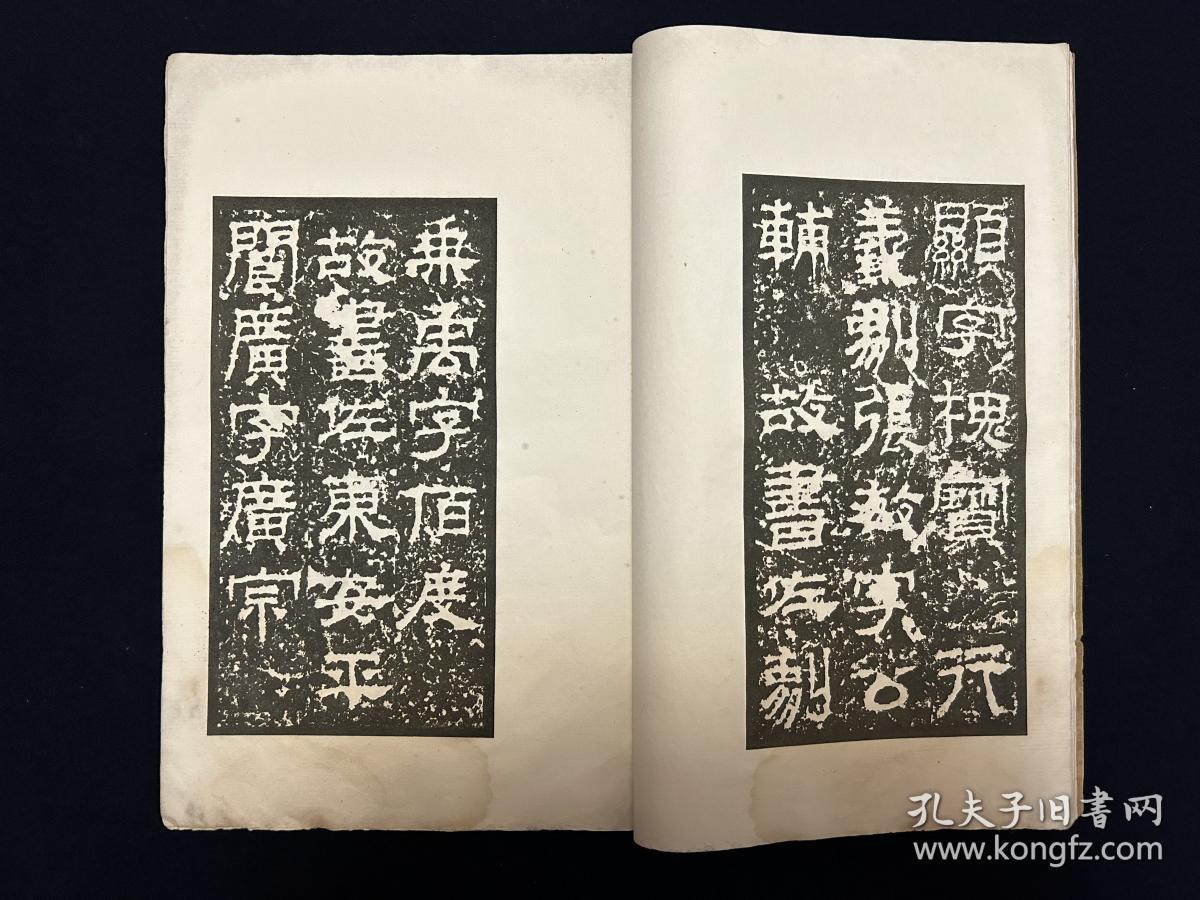 顯字槐寶行
義劇張敏字公
輔 故書佐劇
乘禹字佰度
故書佐東安平
閻廣字廣宗
孔夫子旧書网
www.kongfz.com